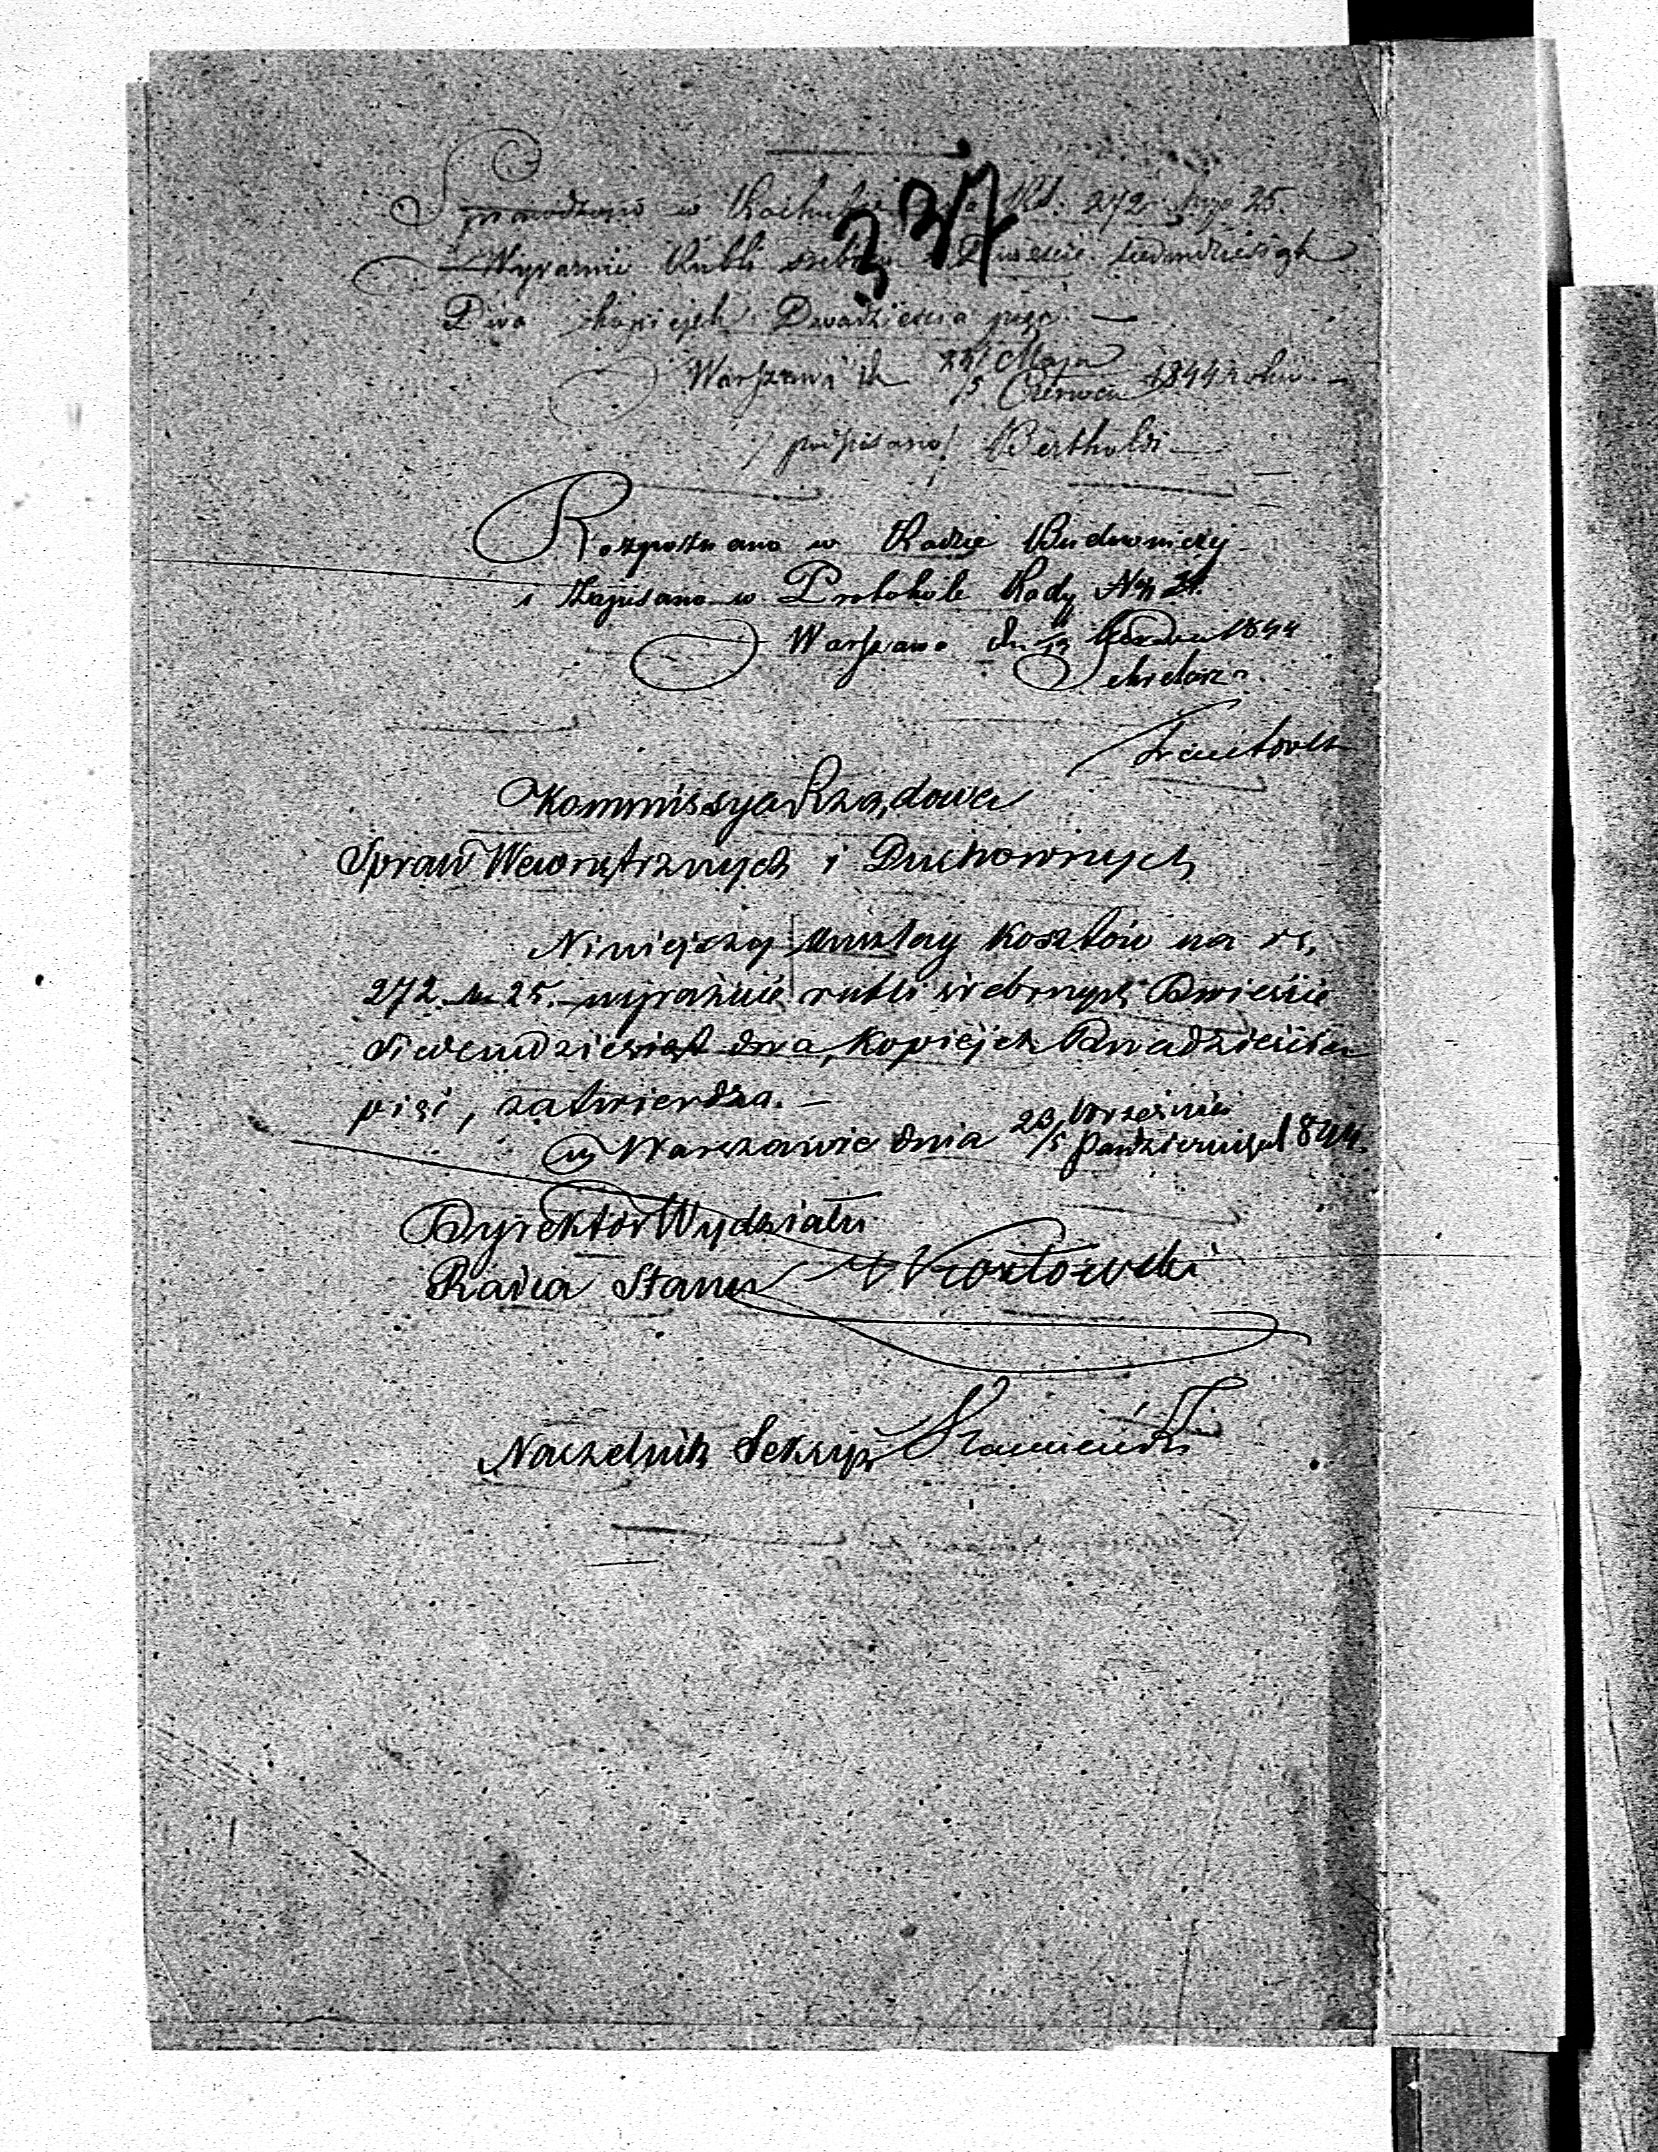 337
Sprawdzono w Rachubie na RS. 272 kop 25.
Wyraznie Rubli srebrem Dwieście siedmdziesiąt
Dwa kopiejek Dwadzieścia pięć —
Warszawa dn 24 Maja / 5 Czerwca 1844 roku. —
/podpisano/ Bertholdi
Rozpoznano w Radzie Budowniczej
i Zapisano w Protokole Rady Nr
Warszawa dn Czerwca 1844
Sekretarz
Kommissya Rządowa
Spraw Wewnętrznych i Duchownych
Niniejszy Anszlag kosztów na rs.
272 k 25. wyraźnie rubli srebrnych Dwieście
Siedemdziesiąt dwa, Kopiejek Dwadzieścia
pięć, zatwierdza. —
w Warszawie dnia 23 Września / 5 Października 1844.
Dyrektor Wydziału
Radca Stanu Kozłowski
Naczelnik Sekcyi